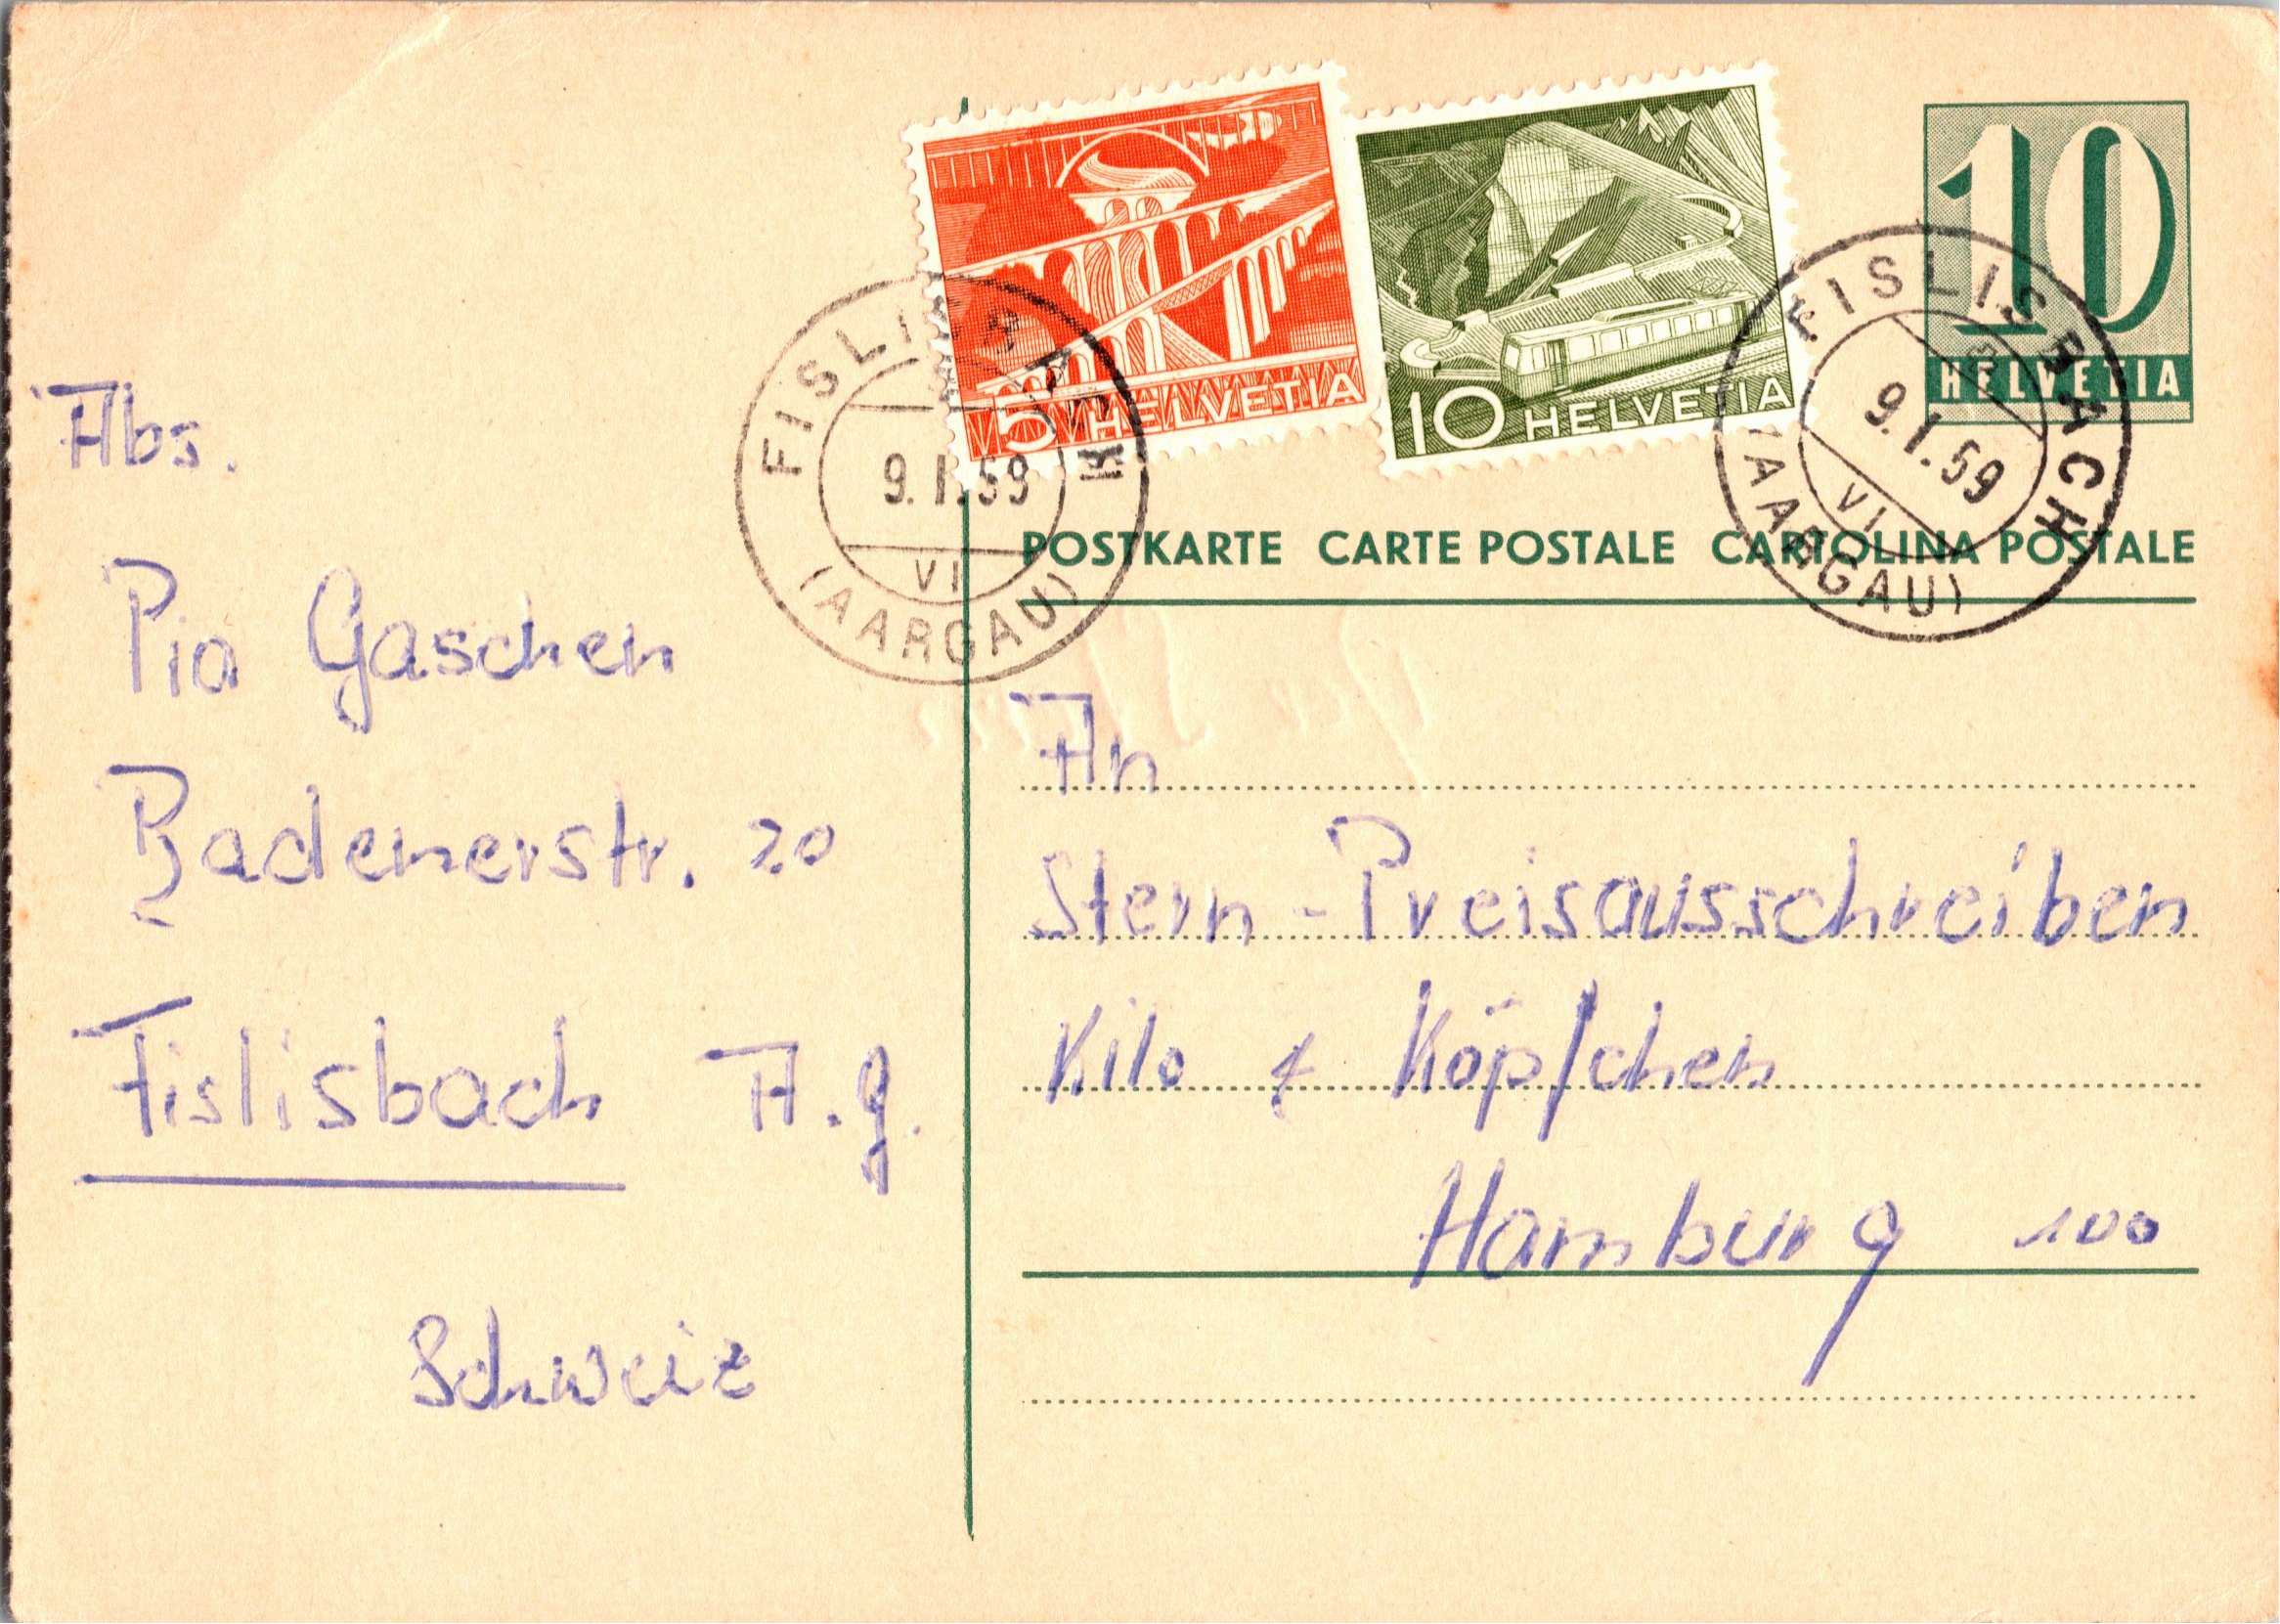 5 HELVETIA
10 HELVETIA
10
HELVETIA
FISLISBACH
9.I.59
VI
(AARGAU)
FISLISBACH
9.I.59
VI
(AARGAU)
POSTKARTE CARTE POSTALE CARTOLINA POSTALE
Abs.
Pia Gaschen
Badenerstr. 20
Fislisbach A.g.
Schweiz
An
Stern-Preisausschreiben
Kilo & Köpfchen
Hamburg 100